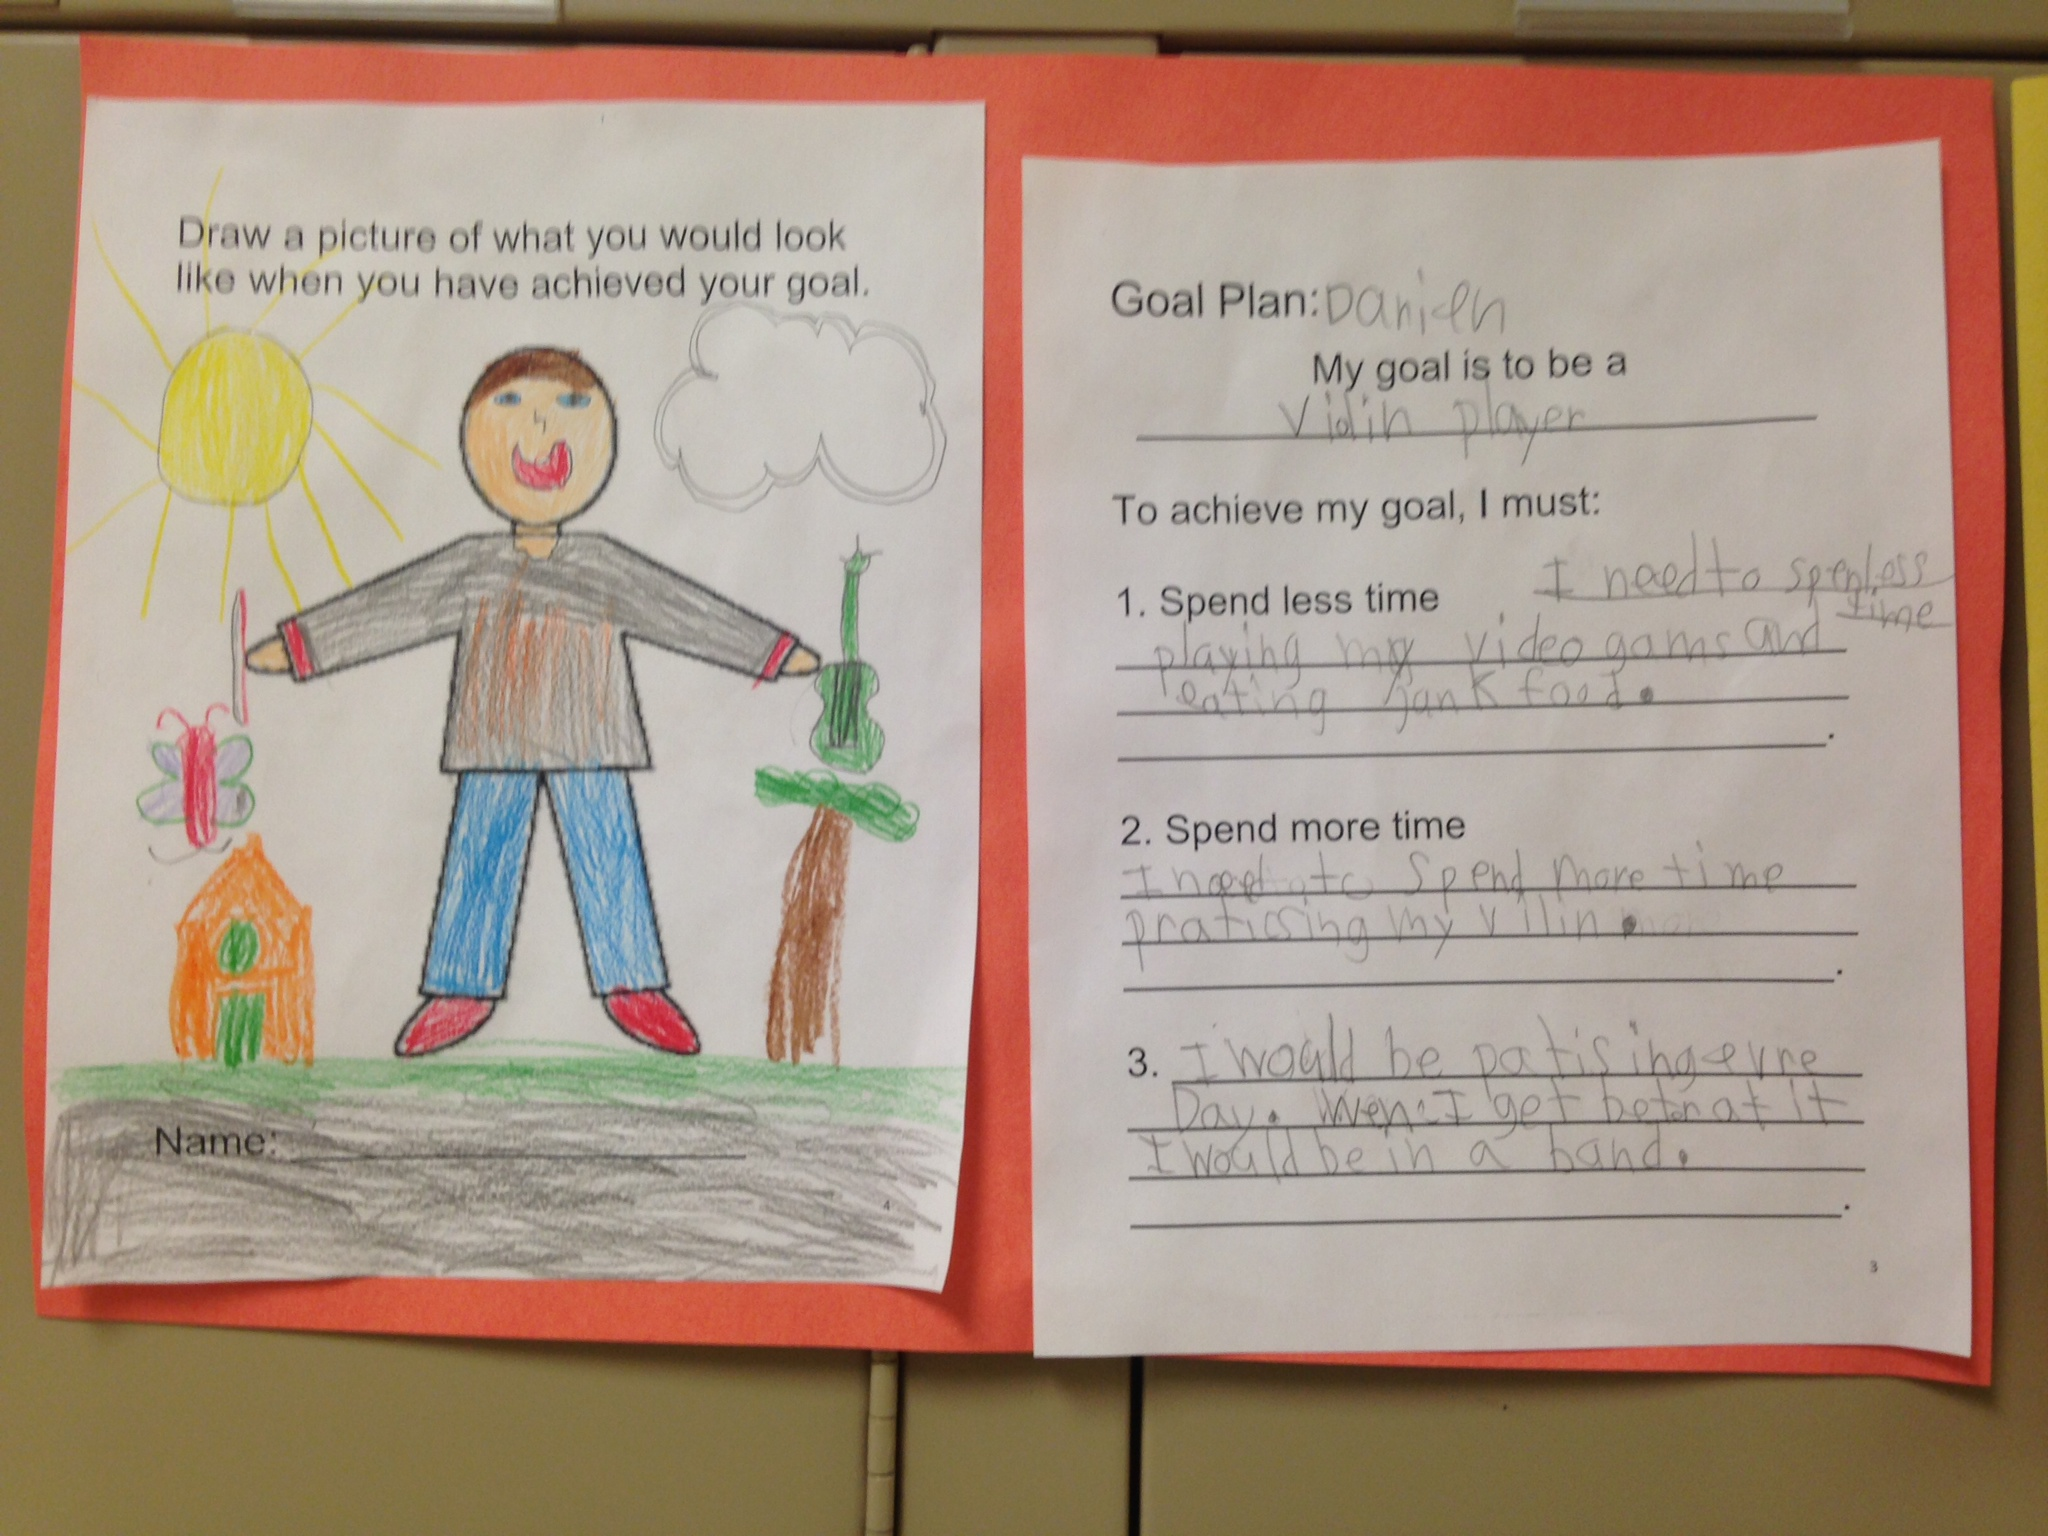 Draw a picture of what you would look
like when you have achieved your goal.
Name:
4
Goal Plan: Danieh
My goal is to be a
Vidin player
To achieve my goal, I must:
1. Spend less time
I need to spenless
time
playing my video gams and
eating jank food.
.
2. Spend more time
I need to Spend more time
praticsing my vilin.
.
3. I would be patising evre
Day. Wen I get betr at it
I would be in a band.
.
3